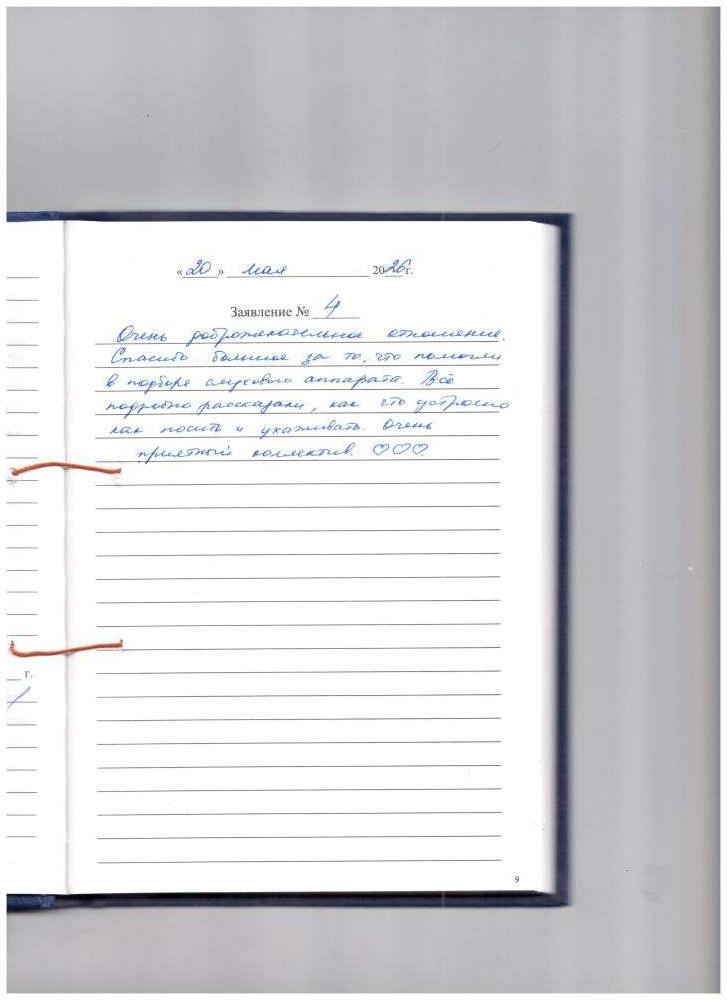 «20» мая 2026г.
Заявление № 4
Очень доброжелательное отношение.
Спасибо большое за то, что помогли
в подборе слухового аппарата. Всё
подробно рассказали, как это устроено
как носить и ухаживать. Очень
приятный коллектив. ♡♡♡.
г.
9